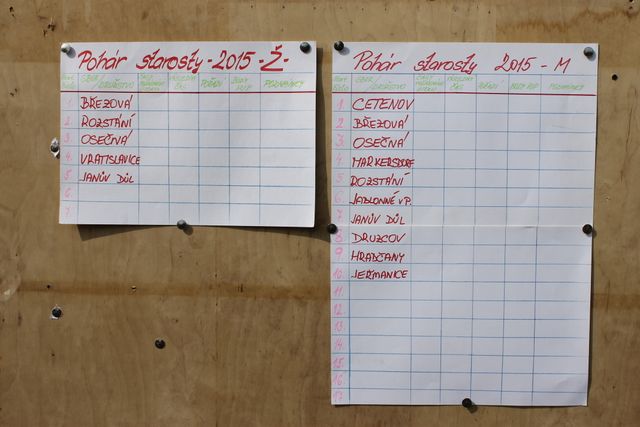 Pohár starosty - 2015 - Ž.
SBOR/DRUŽSTVO POŘADÍ POZNÁMKY
1. BŘEZOVÁ
2. ROZSTÁNÍ
3. OSEČNÁ
4. VRATISLAVICE
5. JANŮV DŮL
6.
7.
Pohár starosty 2015 - M
SBOR/DRUŽSTVO POŘADÍ POZNÁMKY
1. CETENOV
2. BŘEZOVÁ
3. OSEČNÁ
4. MARKERSDORF
5. ROZSTÁNÍ
6. JABLONNÉ v P.
7. JANŮV DŮL
8. DRUZCOV
9. HRADČANY
10. JEŘMANICE
11.
12.
13.
14.
15.
16.
17.